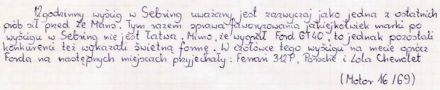 12godzinny wyścig w Sebring uważany jest zazwyczaj jako jedna z ostatnich
prób sił przed Le Mans. Tym razem sprawa faworyzowania jakiejkolwiek marki po
wyścigu w Sebring nie jest łatwa. Mimo, że wygrał Ford GT40, to jednak pozostali
konkurenci też wykazali świetną formę. W czołówce tego wyścigu na mecie oprócz
Forda na następnych miejscach przyjechały: Ferrari 312P, Porsche i Lola Chevrolet
(Motor 16/69)